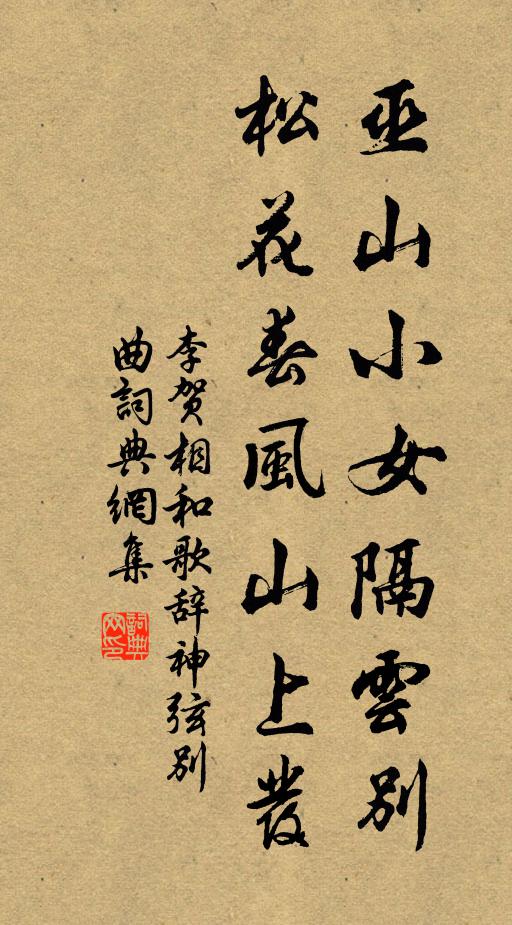 巫山小女隔雲別
松花春風山上發
李贺相和歌辞神弦別
曲詞典網集
詞典網印